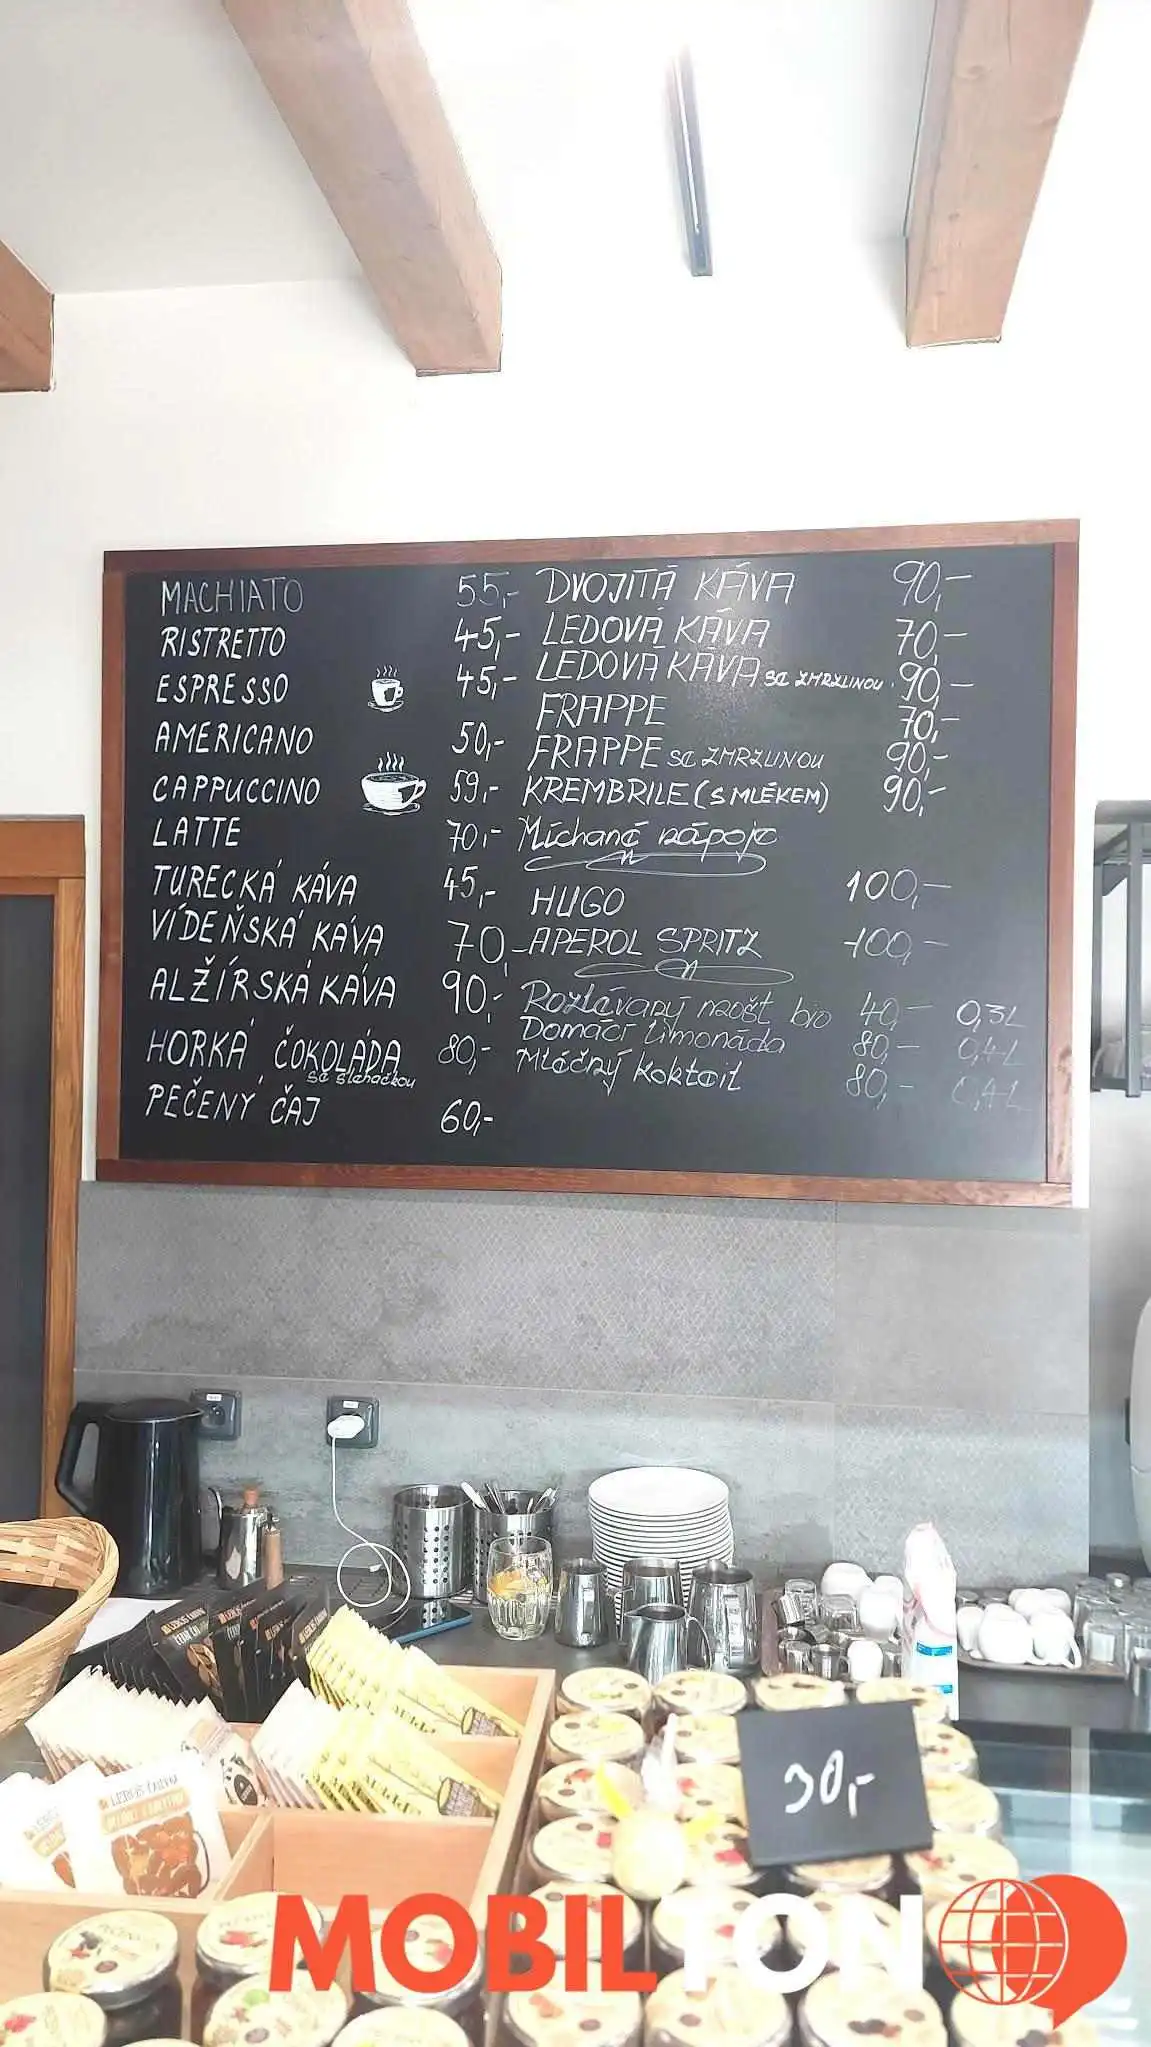 MACHIATO 55,-
RISTRETTO 45,-
ESPRESSO 45,-
AMERICANO 50,-
CAPPUCCINO 59,-
LATTE 70,-
TURECKÁ KÁVA 45,-
VÍDEŇSKÁ KÁVA 70,-
ALŽÍRSKÁ KÁVA 90,-
HORKÁ ČOKOLÁDA 80,-
se šlehačkou
PEČENÝ ČAJ 60,-
DVOJITÁ KÁVA 90,-
LEDOVÁ KÁVA 70,-
LEDOVÁ KÁVA se ZMRZLINOU 90,-
FRAPPE 70,-
FRAPPE se ZMRZLINOU 90,-
KREMBRILE (S MLÉKEM) 90,-
Míchané nápoje
HUGO 100,-
APEROL SPRITZ 100,-
Rozlévaný mošt bio 40,- 0,3L
Domácí limonáda 80,- 0,4L
Mléčný koktail 80,- 0,4L
30,-
MOBILTON